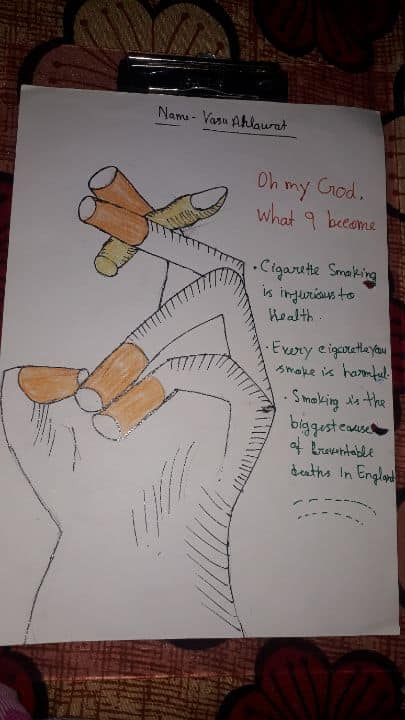 Name - Vasu Ahlawat
Oh my God.
What 9 become
• Cigarette Smoking
is injurious to
Health.
• Every cigarette you
smoke is harmful.
• Smoking is the
biggest cause
of Preventable
deaths in England